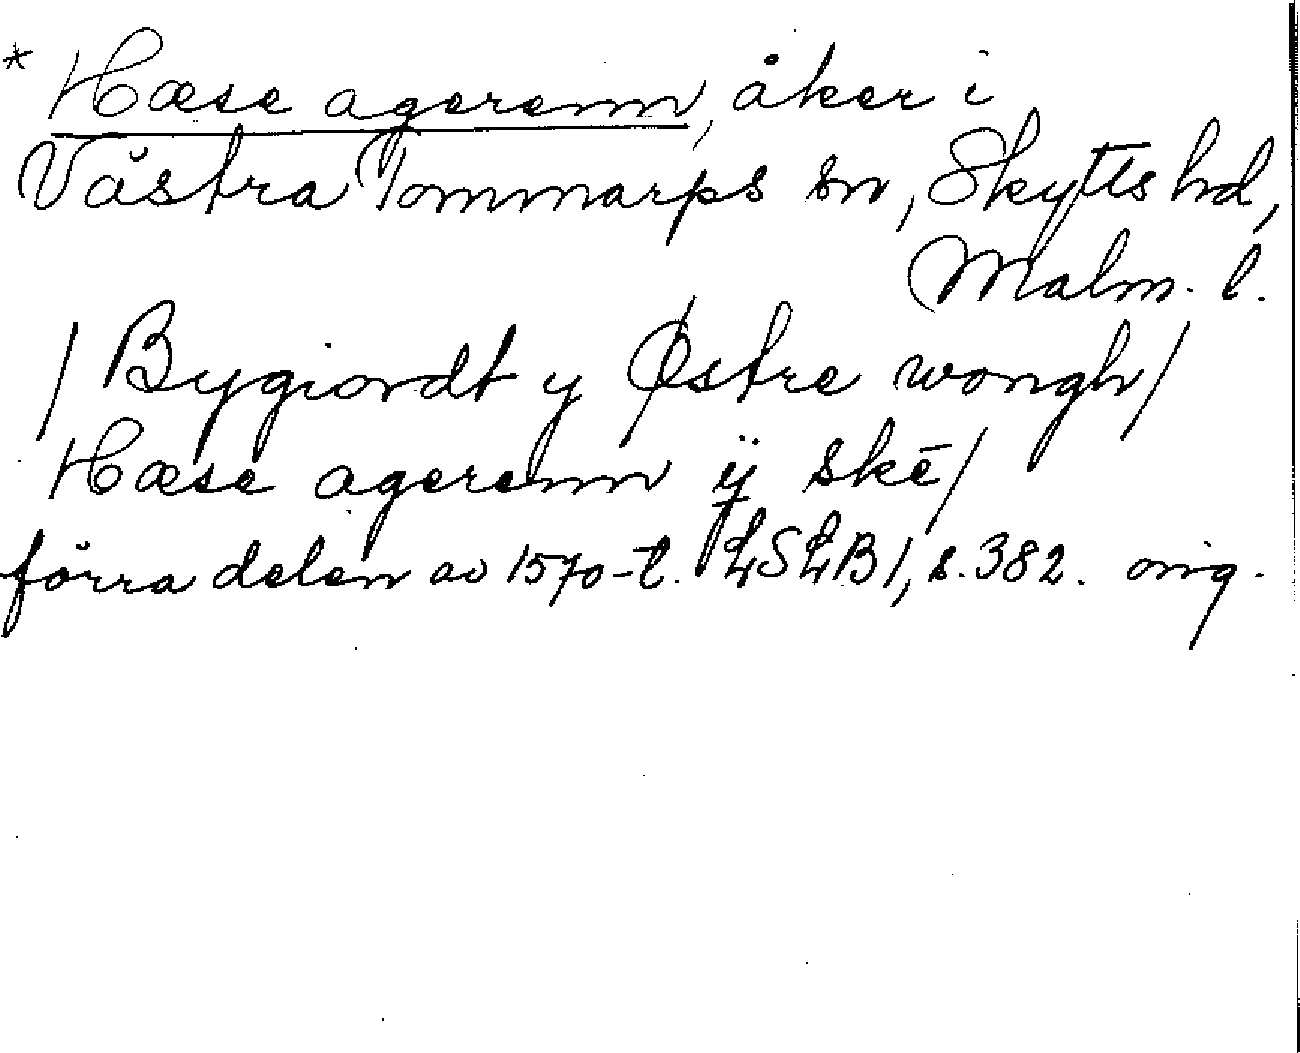 * Hæse agerenn, åker i
Västra Tommarps sn, Skytts hd,
Malm. l.
/ Bygiordt y Østre wongh /
Hæse agerenn ij skē /
förra delen av 1570-t. LSLB1, s. 382. orig.